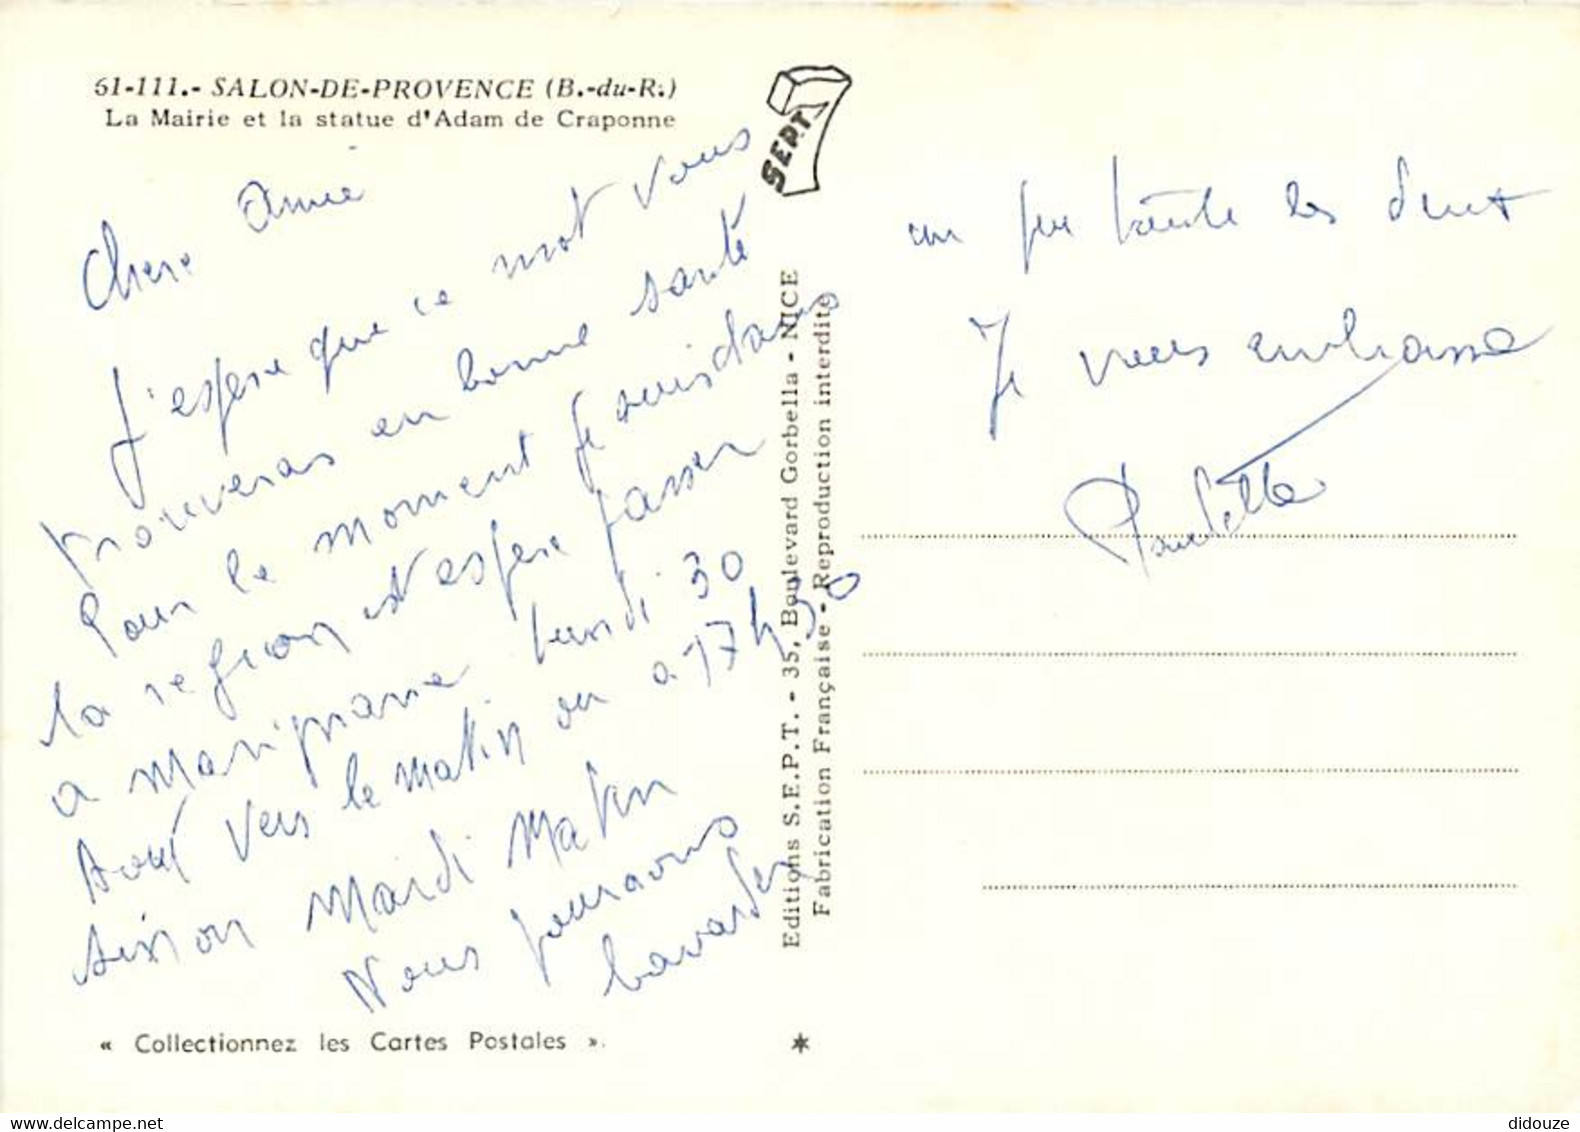 61-111.- SALON-DE-PROVENCE (B.-du-R.)
La Mairie et la statue d'Adam de Craponne
SEPT 7
Chere Amie
J'espere que ce mot vous
trouveras en bonne santé
Pour le moment je suis dans
la region et espere passer
a Marignane lundi 30
Aout vers le matin ou a 17h30
Sinon Mardi Matin
Nous pourrons
bavarder
« Collectionnez les Cartes Postales ».
Editions S.E.P.T. - 35, Boulevard Gorbella - NICE
Fabrication Française - Reproduction interdite
un peu toute les deux
Je vous embrasse
Paulette
didouze